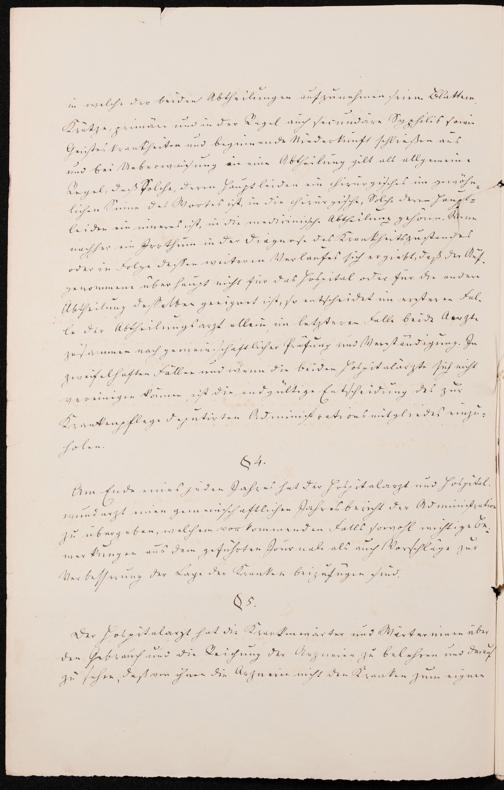 in welche der beiden Abtheilungen aufzunehmen seien. Blattern,
Krätze, primäre und in der Regel auch secundäre Syphilis sowie
Geisteskrankheiten und beginnende Niederkunft schließen aus
und bei Ueberweisung in eine Abtheilung gilt als allgemeine
Regel, daß Solche, deren Hauptleiden ein chirurgisches im gewöhn-
lichen Sinne des Wortes ist, in die chirurgische, Solche deren Haupt-
leiden ein inneres ist, in die medicinische Abtheilung gehören. Wenn
nachher ein Irrthum in der Diagnose des Krankheitszustandes
oder in Folge dessen weiteren Verlaufes sich ergiebt, daß der Auf-
genommene überhaupt nicht für das Hospital oder für die andere
Abtheilung desselben geeignet ist, so entscheidet im ersteren Fal-
le der Abtheilungsarzt allein, im letzteren Falle beide Aerzte
zusammen nach gemeinschaftlicher Prüfung und Verständigung. In
zweifelhaften Fällen und wenn die beiden Hospitalärzte sich nicht
vereinigen können, ist die endgültige Entscheidung des zur
Krankenpflege deputirten Administrationsmitgliedes einzu-
holen.
§ 4.
Am Ende eines jeden Jahres hat der Hospitalarzt und Hospital
wundarzt einen gemeinschaftlichen Jahresbericht der Administration
zu übergeben, welchem vorkommenden Falls sowohl wichtige Be-
merkungen aus dem geführten Journale als auch Vorschläge zur
Verbesserung der Lage der Kranken beizufügen sind.
§ 5.
Der Hospitalarzt hat die Krankenwärter und Wärterinnen über
den Gebrauch und die Reichung der Arzneien zu belehren und darauf
zu sehen, daß von ihnen die Arzneien nicht den Kranken zum eignen